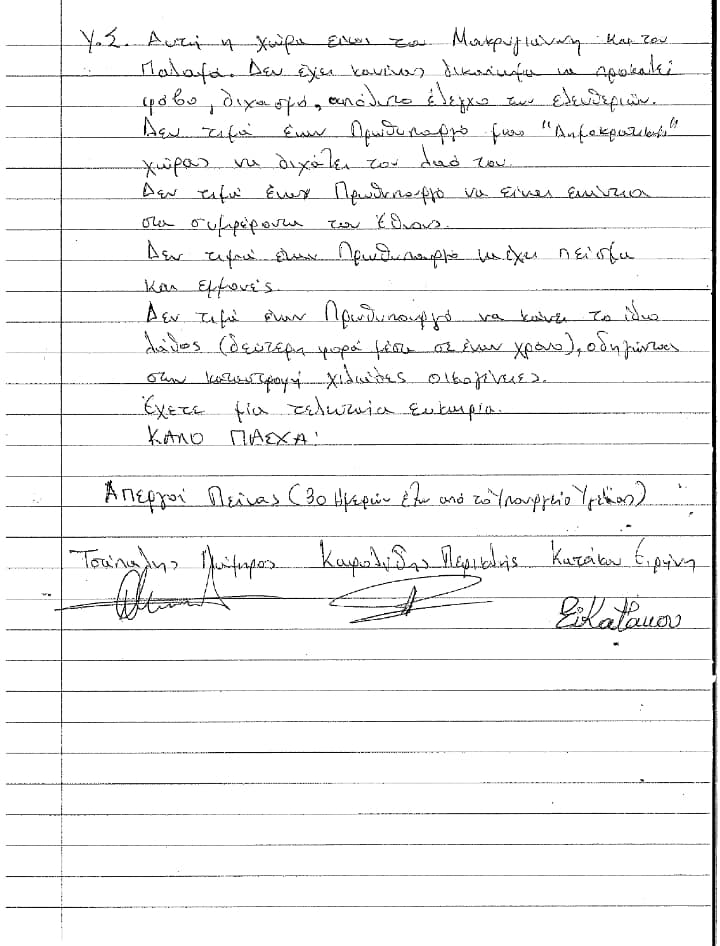 Υ.Σ. Αυτή η χώρα είναι του Μακρυγιάννη και του
Παλαμά. Δεν έχει κανένας δικαίωμα να προκαλεί
φόβο, διχασμό, απόλυτο έλεγχο των ελευθεριών.
Δεν τιμά έναν Πρωθυπουργό μιας "Δημοκρατικής"
χώρας να διχάζει τον λαό του.
Δεν τιμά έναν Πρωθυπουργό να είναι ενάντια
στα συμφέροντα του Έθνους.
Δεν τιμά έναν Πρωθυπουργό να έχει πείσμα
και εμμονές.
Δεν τιμά έναν Πρωθυπουργό να κάνει το ίδιο
λάθος (δεύτερη φορά μέσα σε έναν χρόνο), οδηγώντας
στην καταστροφή χιλιάδες οικογένειες.
Έχετε μία τελευταία ευκαιρία.
ΚΑΛΟ ΠΑΣΧΑ!
Απεργοί Πείνας (30 Ημερών έξω από το Υπουργείο Υγείας)
Καρολίδης Περικλής Κατάκου Ειρήνη
Ει Κατάκου